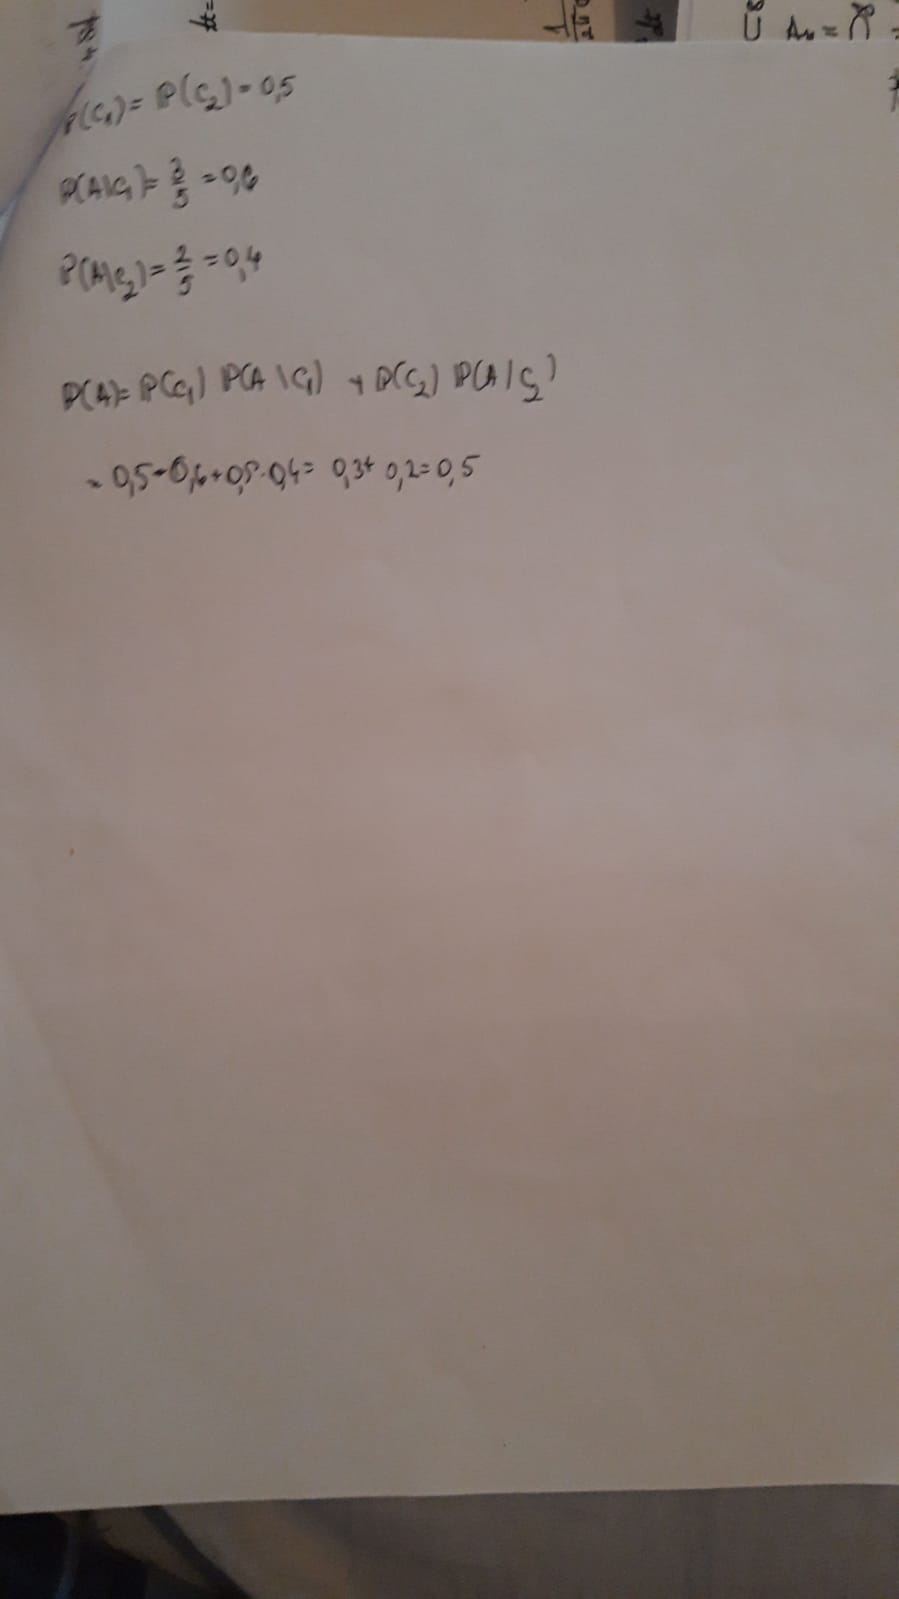 dt=
1/2π
dt
An =
P(C₁)= P(C₂)=0,5
P(A|C₁)= 3/5 =0,6
P(A|C₂)= 2/5 =0,4
P(A)= P(C₁) P(A|C₁) + P(C₂) P(A|C₂)
= 0,5·0,6+0,5·0,4= 0,3+ 0,2=0,5